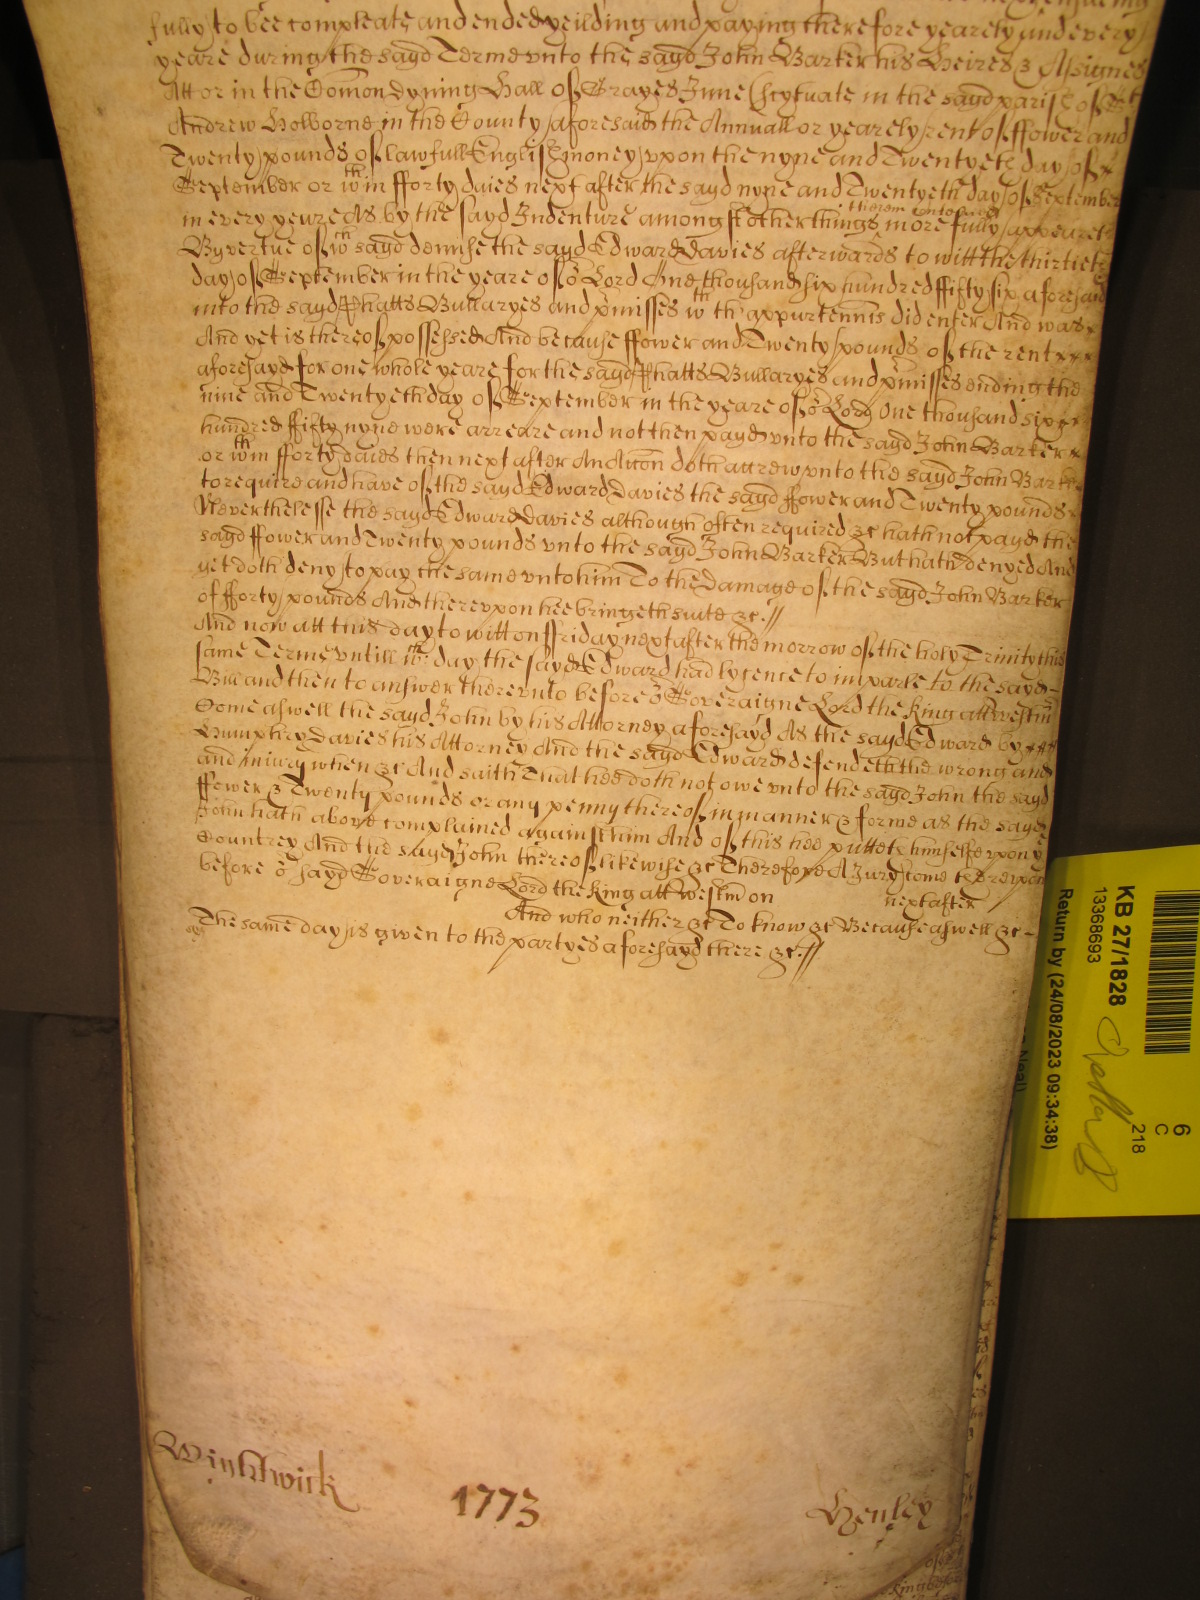 fully to bee compleate and ended yeilding and paying therefore yearely and every
yeare during the sayd Terme vnto the sayd John Barker his Heires & Assignes
Att or in the Com̄on dyning Hall of Grayes Inne scytuate in the sayd parish of St
Andrew Holborne in the County aforesaid the Annuall or yearely rent of ffower and
Twenty pounds of lawfull English money vpon the nyne and Twentyeth day of
September or wth in fforty daies next after the sayd nyne and Twentyeth day of September
in every yeare As by the sayd Indenture amongst other things therein conteyned more fully appeareth
By vertue of wch sayd demise the sayd Edward Davies afterwards to witt the thirtieth
day of September in the yeare of or Lord One thousand six hundred ffifty six aforesaid
into the sayd Phatts Bullaryes and p̄misses wth th'appurtennis did enter And was
And yet is thereof possessed And because ffower and Twenty pounds of the rent
aforesayd for one whole yeare for the sayd Phatts Bullaryes and p̄misses ending the
nine and Twentyeth day of September in the yeare of or Lord One thousand six
hundred ffifty nyne were arreare and not then payd vnto the sayd John Barker
or wth in fforty daies then next after An Ac̄on doth accrew vnto the sayd John Barker
to require and have of the sayd Edward Davies the sayd ffower and Twenty pounds
Neverthelesse the sayd Edward Davies although often required &c hath not payd the
sayd ffower and Twenty pounds vnto the sayd John Barker But hath denyed And
yet doth deny to pay the same vnto him To the Damage of the sayd John Barker
of fforty pounds And therevpon hee bringeth suite &c.//
And now att this day to witt on ffriday next after the morrow of the holy Trinity this
same Terme vntill wch day the sayd Edward had lycence to imparle to the sayd
Bill and then to answer therevnto before or Soveraigne Lord the King att Westm̄
Come aswell the sayd John by his Attorney aforesayd As the sayd Edward by
Humphry Davies his Attorney And the sayd Edward defendeth the wrong and
and iniury when &c And saith That hee doth not owe vnto the sayd John the sayd
ffower & Twenty pounds or any penny thereof in manner & forme as the sayd
John hath above complained against him And of this hee putteth himselfe vpon ye
Countrey And the sayd John thereof likewise &c Therefore A Jury come therevpon
before or sayd Soveraigne Lord the King att Westm̄ on next after
And who neither &c To know &c Because aswell &c
The same day is given to the partyes aforesayd there &c.//
Winstwick 1773 Henley
KB 27/1828
13368693
Return by (24/08/2023 09:34:38)
6
C
218